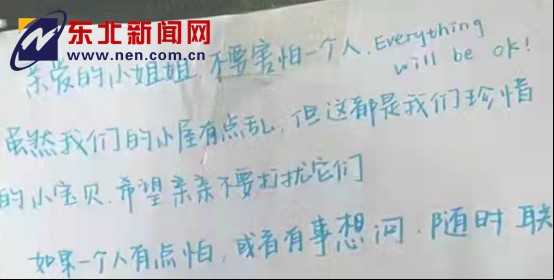 东北新闻网
www.nen.com.cn
亲爱的小姐姐.不要害怕一个人.Everything
will be ok!
虽然我们的小屋有点乱,但这都是我们珍惜
的小宝贝.希望亲亲不要打扰它们
如果一个人有点怕,或者有事想问.随时联